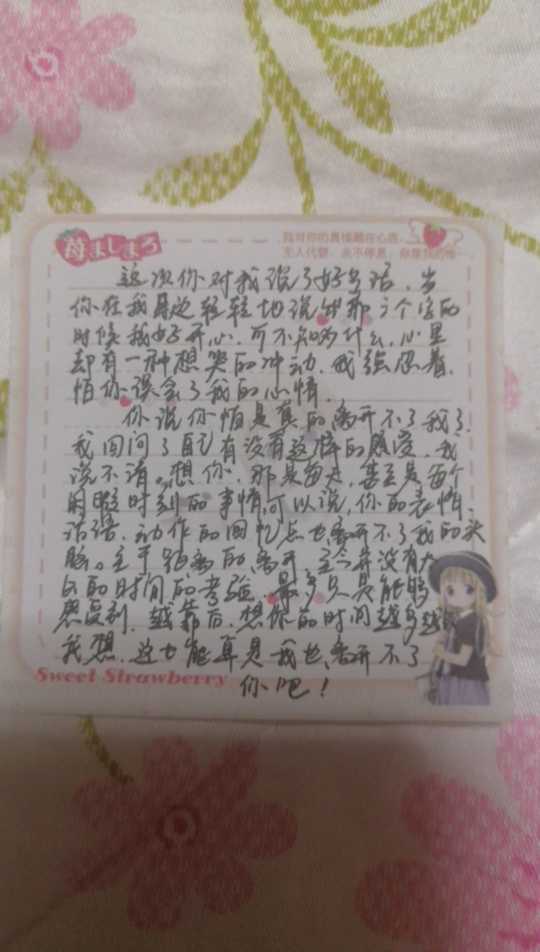 苺ましまろ
我对你的真情藏在心底
无人代替，永不停息，你是我的唯一
这次你对我说了好多话，当
你在我耳边轻轻地说出那三个字的
时候我好开心，可不知为什么，心里
却有一种想哭的冲动，我强忍着，
怕你误会了我的心情。
你说你怕是真的离开不了我了，
我回问了自己有没有这样的感受，我
说不清。想你，那是每天，甚至是每个
闲暇时刻的事情，可以说，你的表情、
话语、动作的回忆是也离开不了我的头
脑。至于距离的离开，至今并没有太
久的时间的考验，最多只是能够
感受到，越靠后，想你的时间越多越
我想，这也能算是我也离开不了
你吧！
Sweet Strawberry